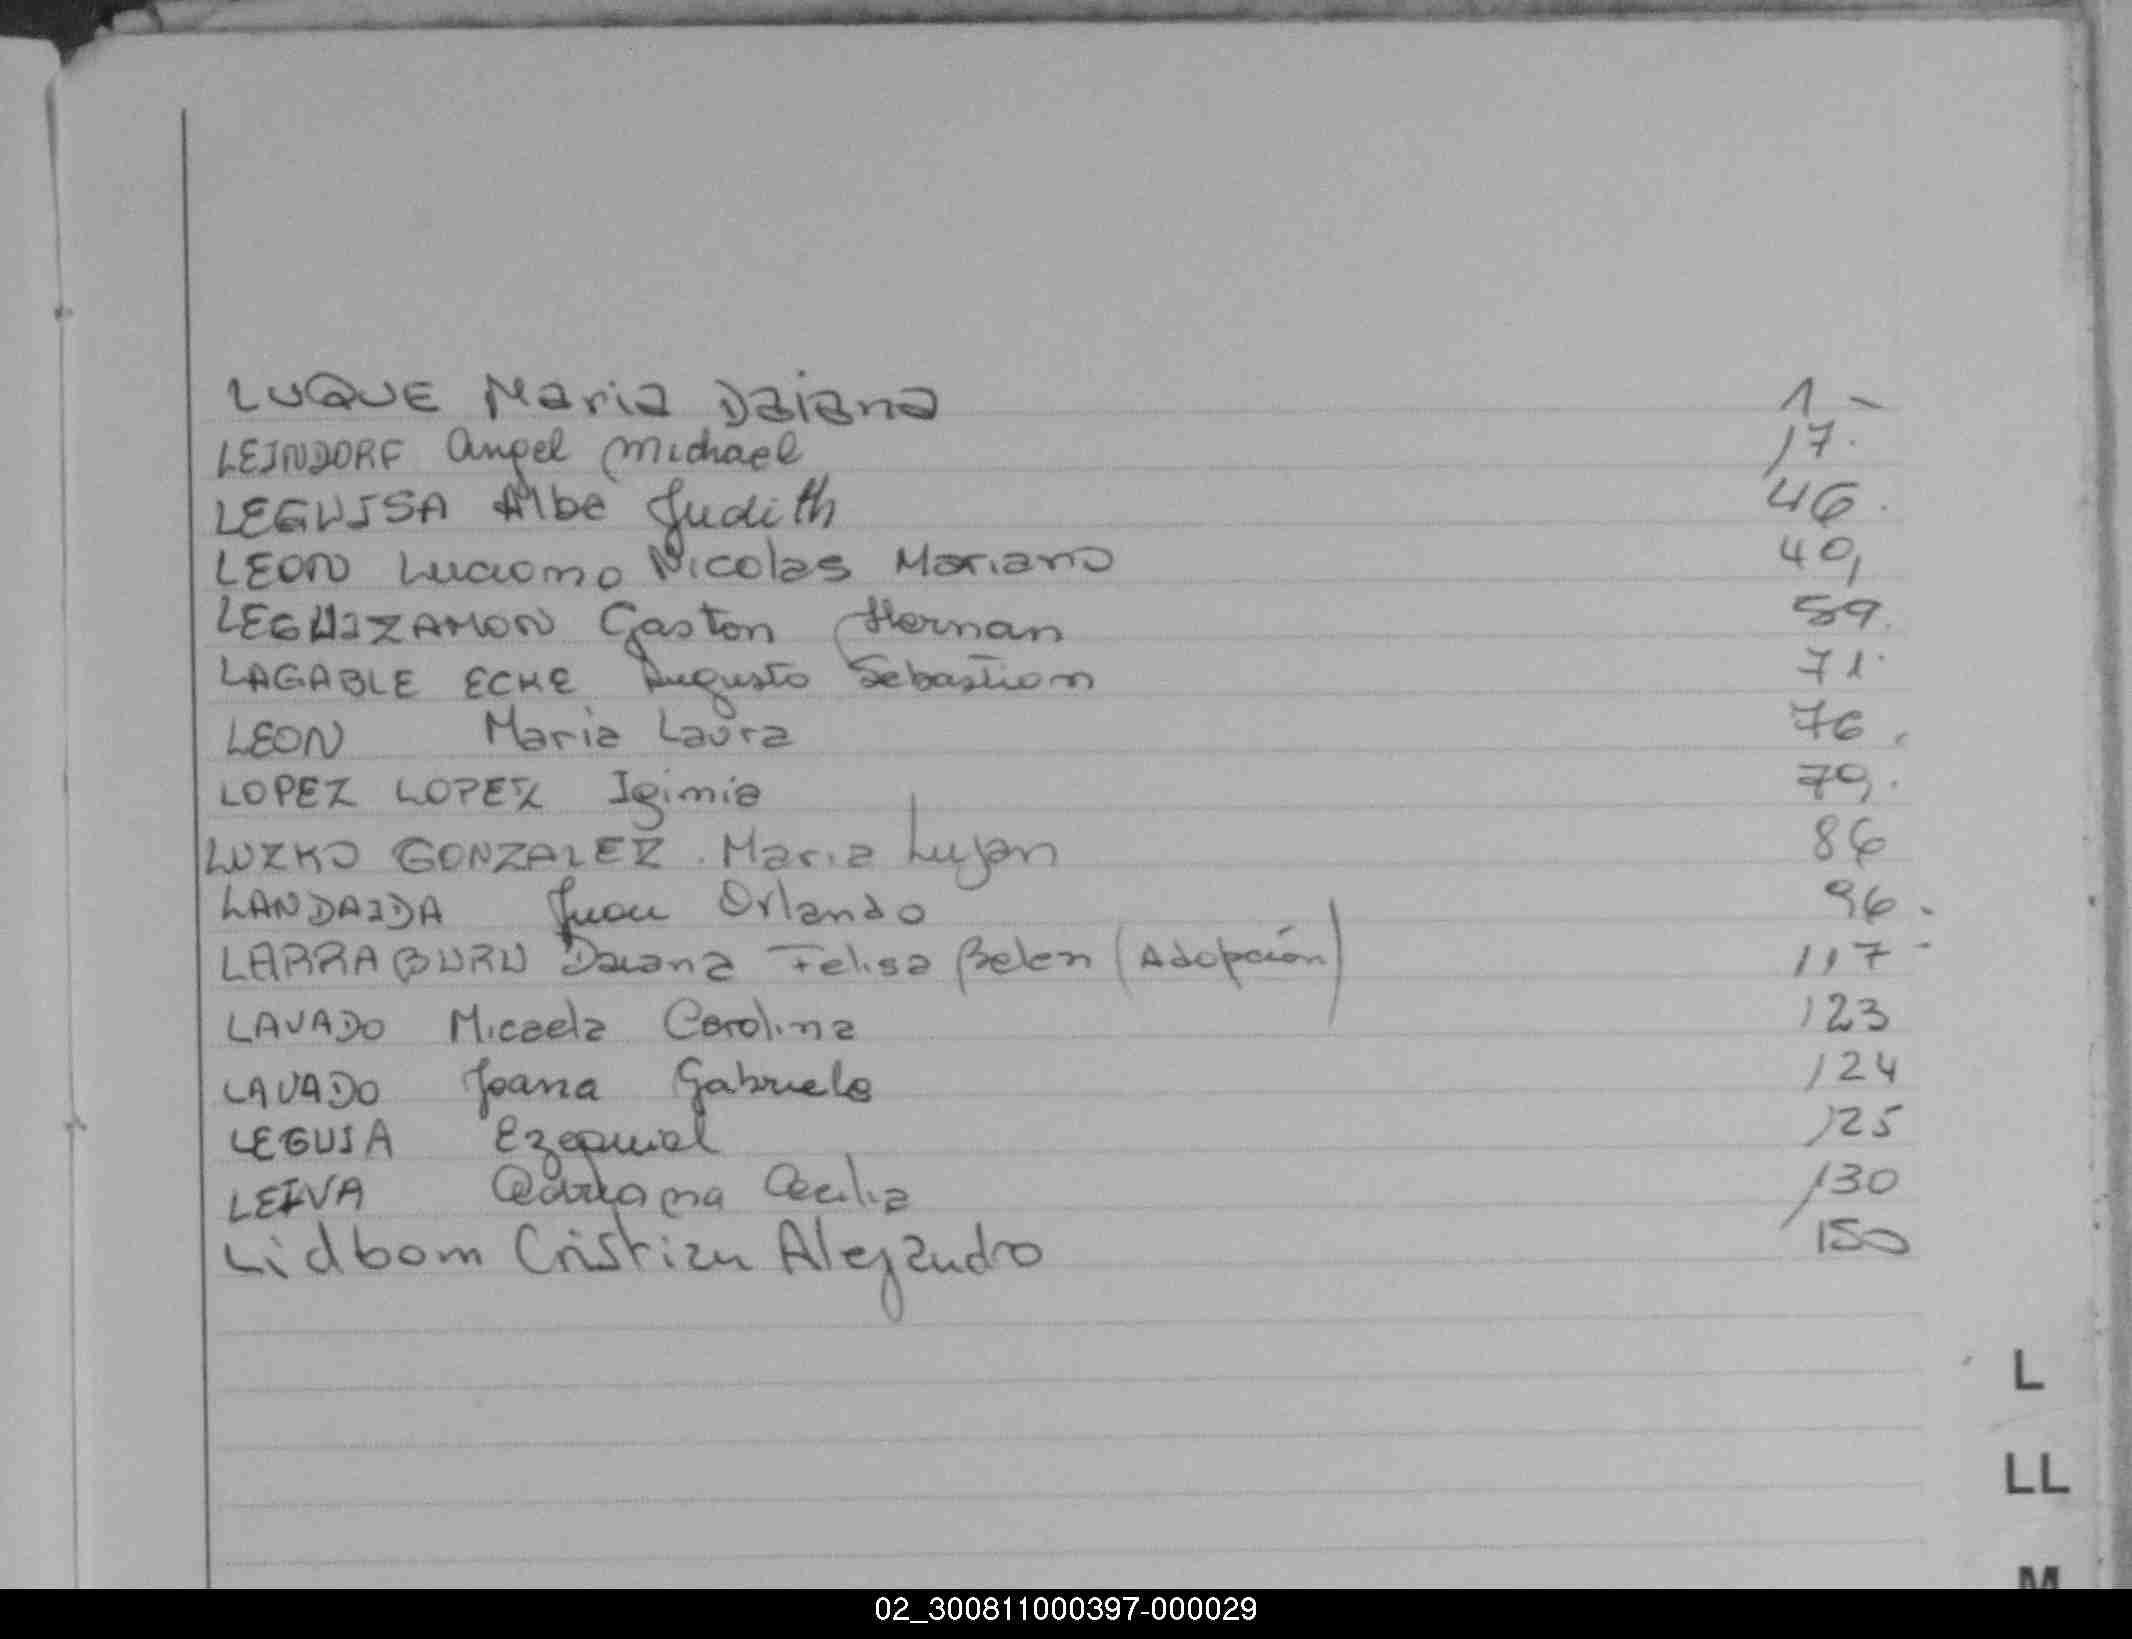 LUQUE Maria Daiana 1 -
LEINDORF Angel Michael 17.
LEGUISA Alba Judith 46.
LEON Luciano Nicolas Mariano 40,
LEGUIZAMON Gaston Hernan 59.
LAGABLE ECHE Augusto Sebastian 71.
LEON Maria Laura 76.
LOPEZ LOPEZ Igimia 79.
LUZKO GONZALEZ. Maria Lujan 86
LANDAIDA Juan Orlando 96.
LARRABURU Daiana Felisa Belen (Adopción) 117-
LAVADO Micaela Carolina 123
LAVADO Joana Gabriela 124
LEGUIA Ezequiel 125
LEIVA Cecilia 130
Lidbom Cristian Alejandro 150
L
LL
M
02_300811000397-000029